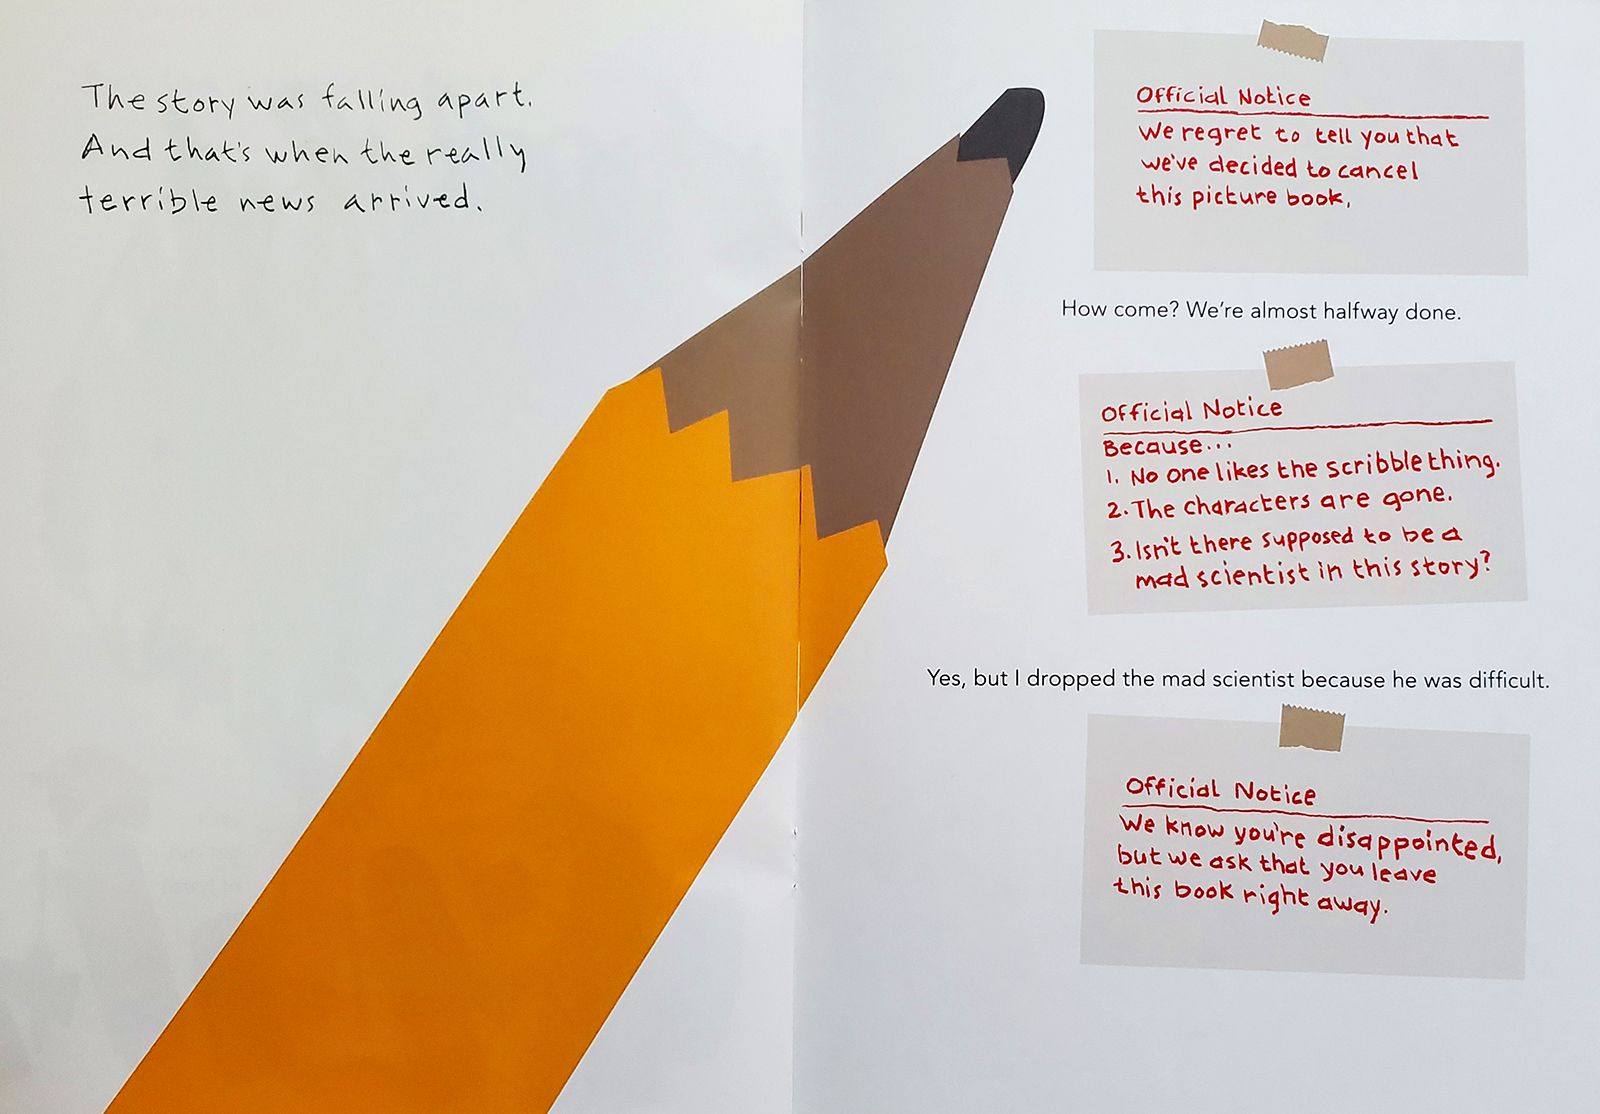 The story was falling apart.
And that's when the really
terrible news arrived.
Official Notice
We regret to tell you that
we've decided to cancel
this picture book.
How come? We're almost halfway done.
Official Notice
Because...
1. No one likes the scribble thing.
2. The characters are gone.
3. Isn't there supposed to be a
mad scientist in this story?
Yes, but I dropped the mad scientist because he was difficult.
Official Notice
We know you're disappointed,
but we ask that you leave
this book right away.